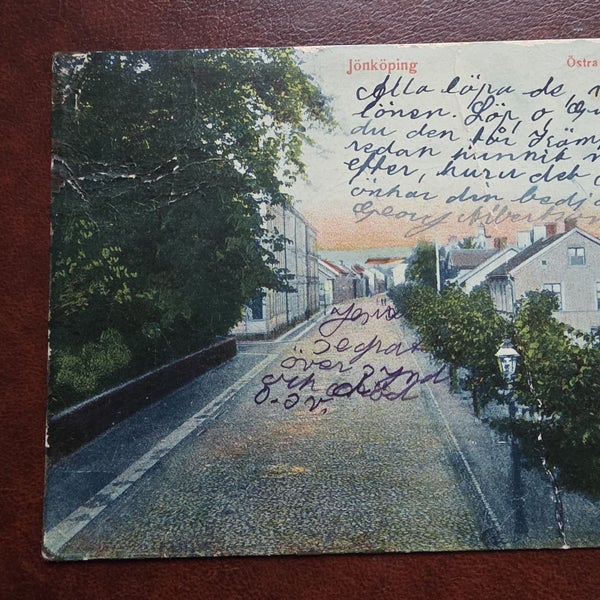 Jönköping
Östra
Alla löpa de,
lönen. Löp, o
du den får Käm
redan hunnit
efter, huru det
önkar din bedj
Georg Albertson
Jesu
Segrar
över Synd
och död